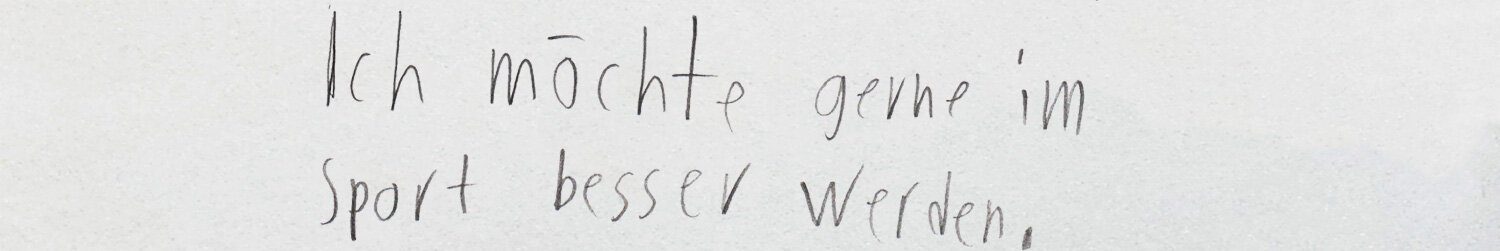 Ich möchte gerne im
Sport besser werden.